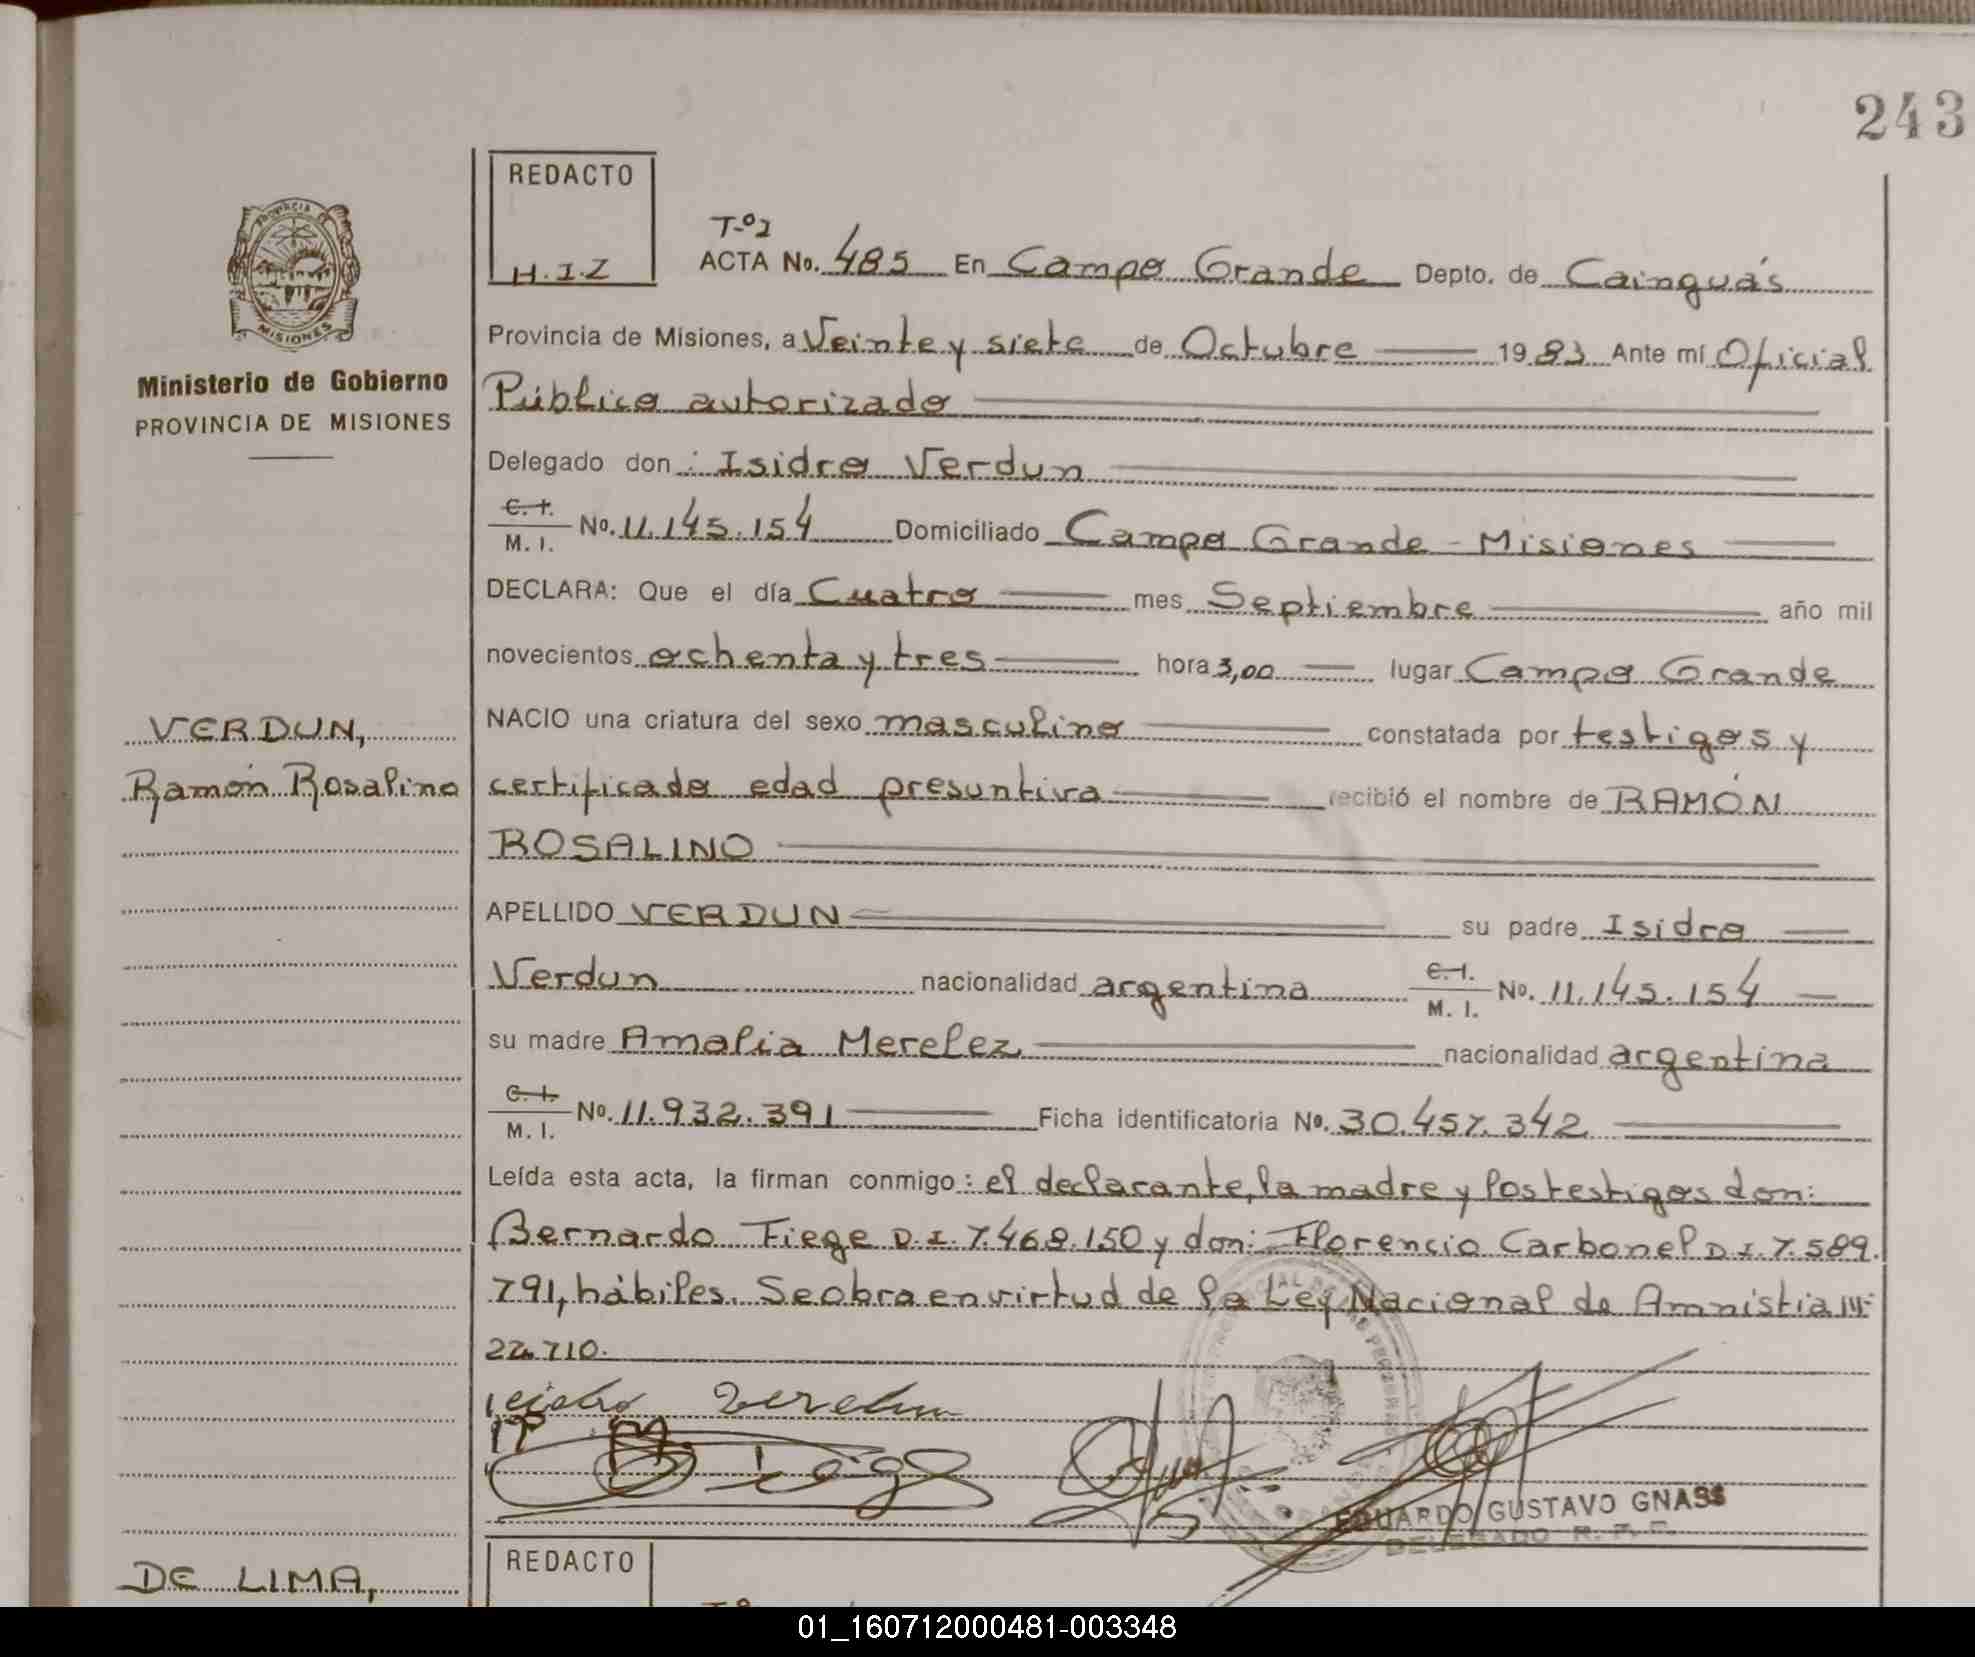 243
REDACTO
H.I.Z
T-º2
ACTA No. 485 En Campo Grande Depto. de Cainguás
PROVINCIA DE
MISIONES
Provincia de Misiones, a Veinte y siete de Octubre 1983 Ante mí Oficial
Ministerio de Gobierno
PROVINCIA DE MISIONES
Público autorizado
Delegado don: Isidro Verdun
C. I. / M. I. No. 11.145.154 Domiciliado Campo Grande - Misiones
DECLARA: Que el día Cuatro mes Septiembre año mil
novecientos ochenta y tres hora 3,00 lugar Campo Grande
VERDUN,
NACIO una criatura del sexo masculino constatada por testigos y
Ramón Rosalino
certificado edad presuntiva recibió el nombre de RAMÓN
ROSALINO
APELLIDO VERDUN su padre Isidro
Verdun nacionalidad argentina C. I. / M. I. No. 11.145.154
su madre Amalia Merelez nacionalidad argentina
C. I. / M. I. No. 11.932.391 Ficha identificatoria No. 30.457.342
Leída esta acta, la firman conmigo: el declarante, la madre y los testigos don:
Bernardo Fiege D.I. 7.468.150 y don: Florencio Carbonel D.I. 7.589.
791, hábiles. Se obra en virtud de la Ley Nacional de Amnistia Nº
22.710.
Isidro Verdun
EDUARDO GUSTAVO GNASS
DELEGADO R. P. P.
REDACTO
DE LIMA,
01_160712000481-003348